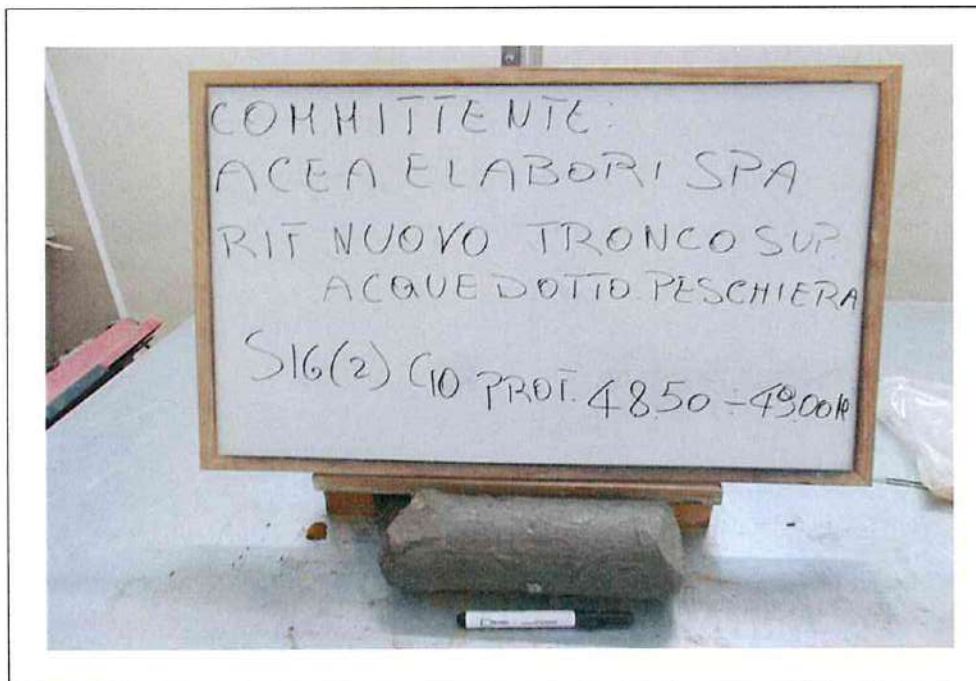 COMMITTENTE:
ACEA ELABORI SPA
RIF NUOVO TRONCO SUP.
ACQUEDOTTO PESCHIERA
S16(2) C10 PROF. 48.50 - 49.00 M